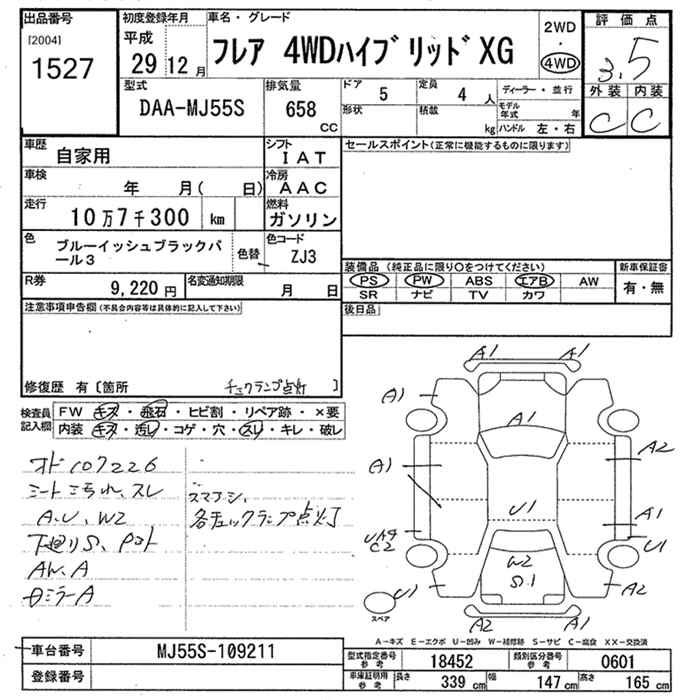 出品番号
[2004]
1527
初度登録年月
平成
29 12 月
車名・グレード
フレア 4WDハイブリッドXG
2WD
・
4WD
評価点
3.5
外装 内装
C C
型式
DAA-MJ55S
排気量
658
cc
ドア
5
定員
4 人
形状
積載
kg
ディーラー・並行
モデル年式 年
ハンドル 左・右
車歴
自家用
シフト
IAT
車検
年 月( 日)
冷房
AAC
走行
10万7千300 km
燃料
ガソリン
色
ブルーイッシュブラックパール3
色替
色コード
ZJ3
R券
9,220 円
名変通知期限
月 日
セールスポイント(正常に機能するものに限ります)
装備品 (純正品に限り○をつけてください)
PS PW ABS エアB AW
SR ナビ TV カワ
新車保証書
有・無
後日品
注意事項申告欄 (不具合内容等は具体的に記入して下さい)
修復歴 有〔箇所 チェックランプ点灯 〕
検査員記入欄
FW キズ・飛石・ヒビ割・リペア跡・×要
内装 キズ・汚レ・コゲ・穴・スレ・キレ・破レ
オド107226
シートヨゴれ、スレ
A.U、W2
下廻りS、
AW.A
ミラーA
各チェックランプ点灯
A1 A1
A1
A1
A1
A2
U1
A1
U1
C2
W2
S.1
U1
A2
A2 A1
スペア
A-キズ E-エクボ U-凹み W-補修跡 S-サビ C-腐食 XX-交換済
車台番号
MJ55S-109211
登録番号
型式指定番号 参考
18452
類別区分番号 参考
0601
車庫証明用 参考
長さ 339 cm
幅 147 cm
高さ 165 cm